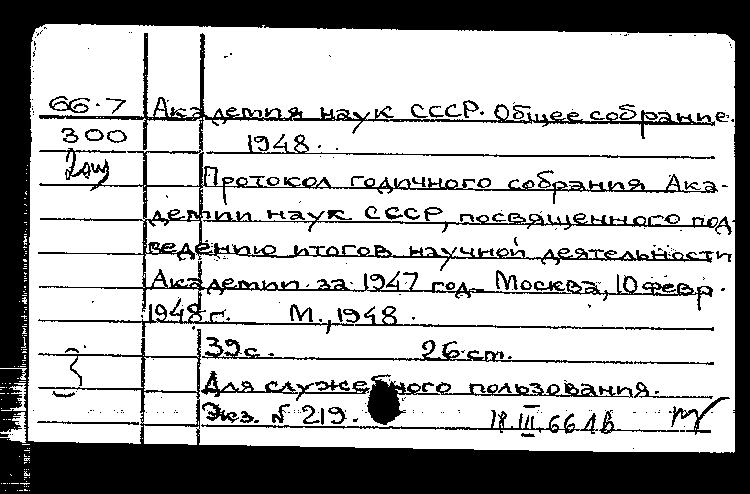 66.7 Академия наук СССР. Общее собрание.
300 1948.
Протокол годичного собрания Ака-
демии наук СССР, посвященного под-
ведению итогов научной деятельности
Академии за 1947 год. Москва, 10 февр.
1948 г. М., 1948.
39 с. 26 cm.
3
Для служебного пользования.
Экз. № 219. 18.III.66